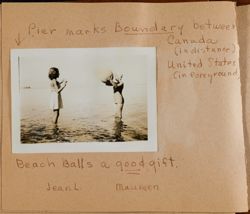 Pier marks Boundary between
Canada
(in distance)
United States
(in foreground
Beach Balls a good gift.
Jean L. Maureen